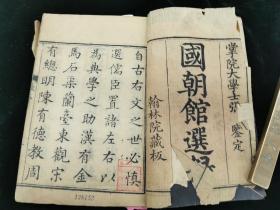 掌院大學士張 鑒定
國朝館選
翰林院藏板
自古右文之世必慎
選儒臣置諸左右以
為典學之助漢有金
馬石渠蘭臺東觀宋
有總明陳有德教周